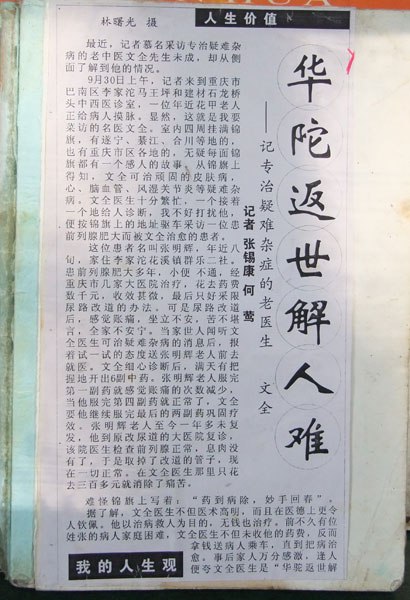 林曙光 摄
人生价值
华陀返世解人难
——记专治疑难杂症的老医生 文全
记者 张锡康 何莺
最近，记者慕名采访专治疑难杂
病的老中医文全先生未成，却从侧
面了解到他的情况。
9月30日上午，记者来到重庆市
巴南区李家沱马王坪和建材石龙桥
头中西医诊室，一位年近花甲老人
正给病人摸脉。显然，这就是我要
菜访的名医文全。室内四周挂满锦
旗，有遂宁、綦江、合川等地的，
也有重庆市区各地的，无疑每面锦
旗都有一个感人的故事。从锦旗上
得知，文全可治顽固的皮肤病，
心、脑血管、风湿关节炎等疑难杂
病。文全医生十分繁忙，一个接着
一个地给人诊断，我不好打扰他，
便按锦旗上的地址驱车采访一位患
前列腺肥大而被文全治愈的患者。
这位患者名叫张明辉，年近八
旬，家住李家沱花溪镇群乐二社。
患前列腺肥大多年，小便不通，经
重庆市几家大医院治疗，花去药费
数千元，收效甚微，最后只好采限
尿路改道的办法。可是尿路改道
后，感觉账痛，坐立不安，苦不堪
言，全家不安宁。当家世人闻听文
全医生可治疑难杂病的消息后，报
着试一试的态度送张明辉老人前去
就医。文全细心诊断后，满天有把
握地开出6副中药。张明辉老人服完
第一副药就感觉账痛的次数减少，
当他服完第四副药就正常了，文全
要他继续服完最后的两副药巩固疗
效。张明辉老人至今一年多未复
发，他到原改尿道的大医院复诊，
该院医生检查前列腺正常，息肉没
有了，于是取掉了改道的管子，现
在一切正常。在文全医生那里只花
去三百多元就消除了痛苦。
难怪锦旗上写着：“药到病除，妙手回春”。
据了解，文全医生不但医术高明，而且在医德上更令
人钦佩。他以治病救人为目的，无钱也治疗。前不久有位
姓张的病人家庭困难，文全医生不但未收他的药费，反而
拿钱送病人乘车，直到把病治
愈。事后家人万分感激，逢人
便夸文全医生是“华驼返世解
我的人生观